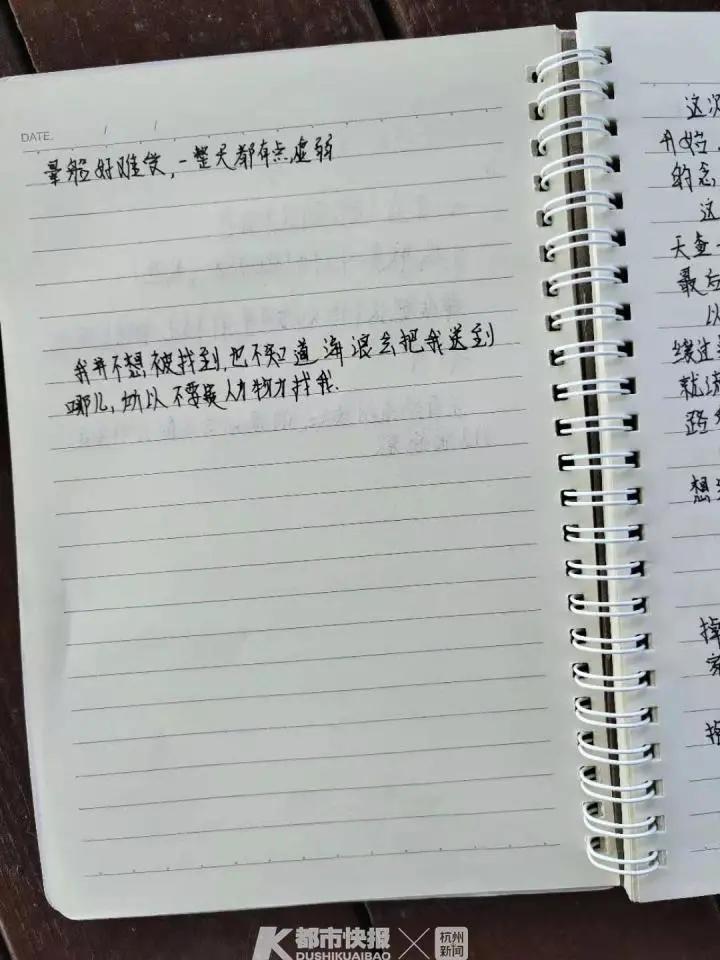 DATE. / /
晕船好难受，一整天都有点虚弱
我并不想被找到，也不知道海浪会把我送到
哪儿，所以不要废人力物力找我.
这次
开始
的念
这
天查
最后
以
缘
就
路
想
掉
家
都市快报
DUSHIKUAIBAO
杭州
新闻